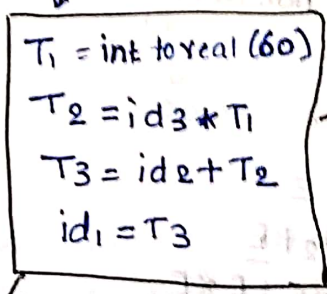 T1 = int to real (60)
T2 = id3 * T1
T3 = id2 + T2
id1 = T3